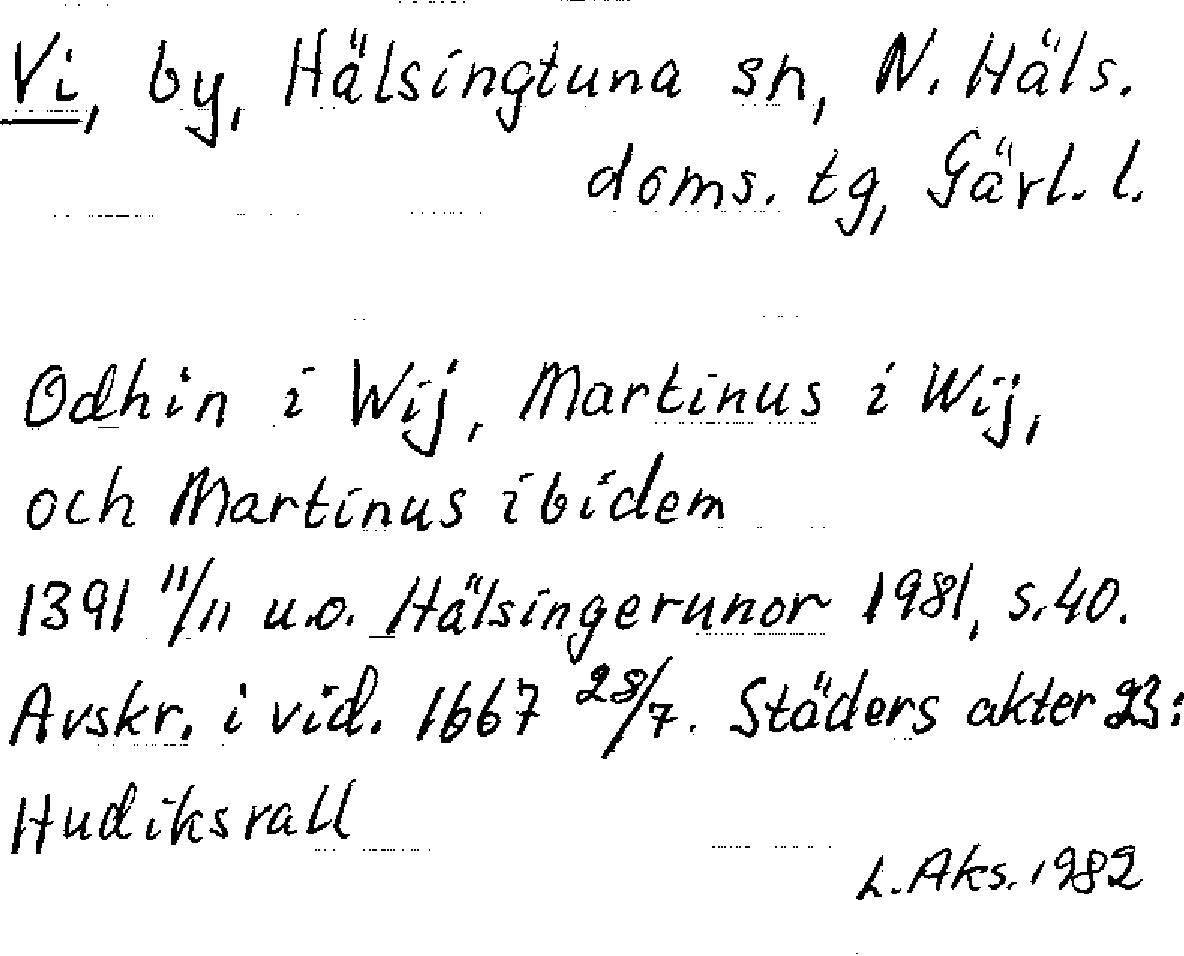 Vi, by, Hälsingtuna sn, N. Häls.
doms. tg, Gävl. l.
Odhin i Wij, Martinus i Wij,
och Martinus ibidem
1391 11/11 u.o. Hälsingerunor 1981, s.40.
Avskr. i vid. 1667 28/7. Städers akter 23:
Hudiksvall
L. Aks. 1982